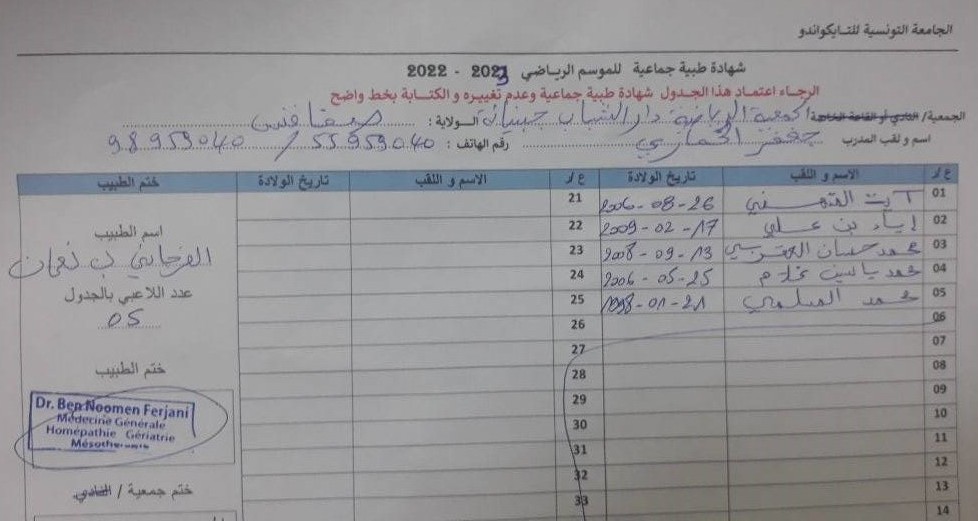 الجامعة التونسية للتايكواندو
شهادة طبية جماعية للموسم الرياضي 2023 - 2022
الرجاء اعتماد هذا الجدول شهادة طبية جماعية وعدم تغييره و الكتابة بخط واضح
الجمعية/ النادي أو القاعة الخاصة: الجمعية الرياضية دار الشباب جبنيانة الولاية: صفاقس
اسم و لقب المدرب جعفر رقم الهاتف: 55959040 / 98959040
ع/ر الاسم و اللقب تاريخ الولادة ع/ر الاسم و اللقب تاريخ الولادة ختم الطبيب
01 آيت 2006-08-26 21
02 إياد بن علي 2009-02-17 22
اسم الطبيب
03 محمد حسان 2008-09-13 23
الفرجاني بن نعمان
04 محمد ياسين 2006-05-25 24
عدد اللاعبي بالجدول
05 محمد السلامي 1998-01-21 25
05
06 26
07 27
08 28
ختم الطبيب
09 29
Dr. Ben Noomen Ferjani
Médecine Générale
10 30
Homépathie Gériatrie
Mésothérapie
11 31
12 32
13 33
ختم جمعية / النادي
14